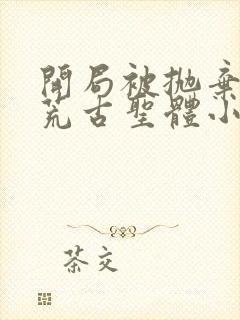 開局被拋棄
荒古聖體小
茶交